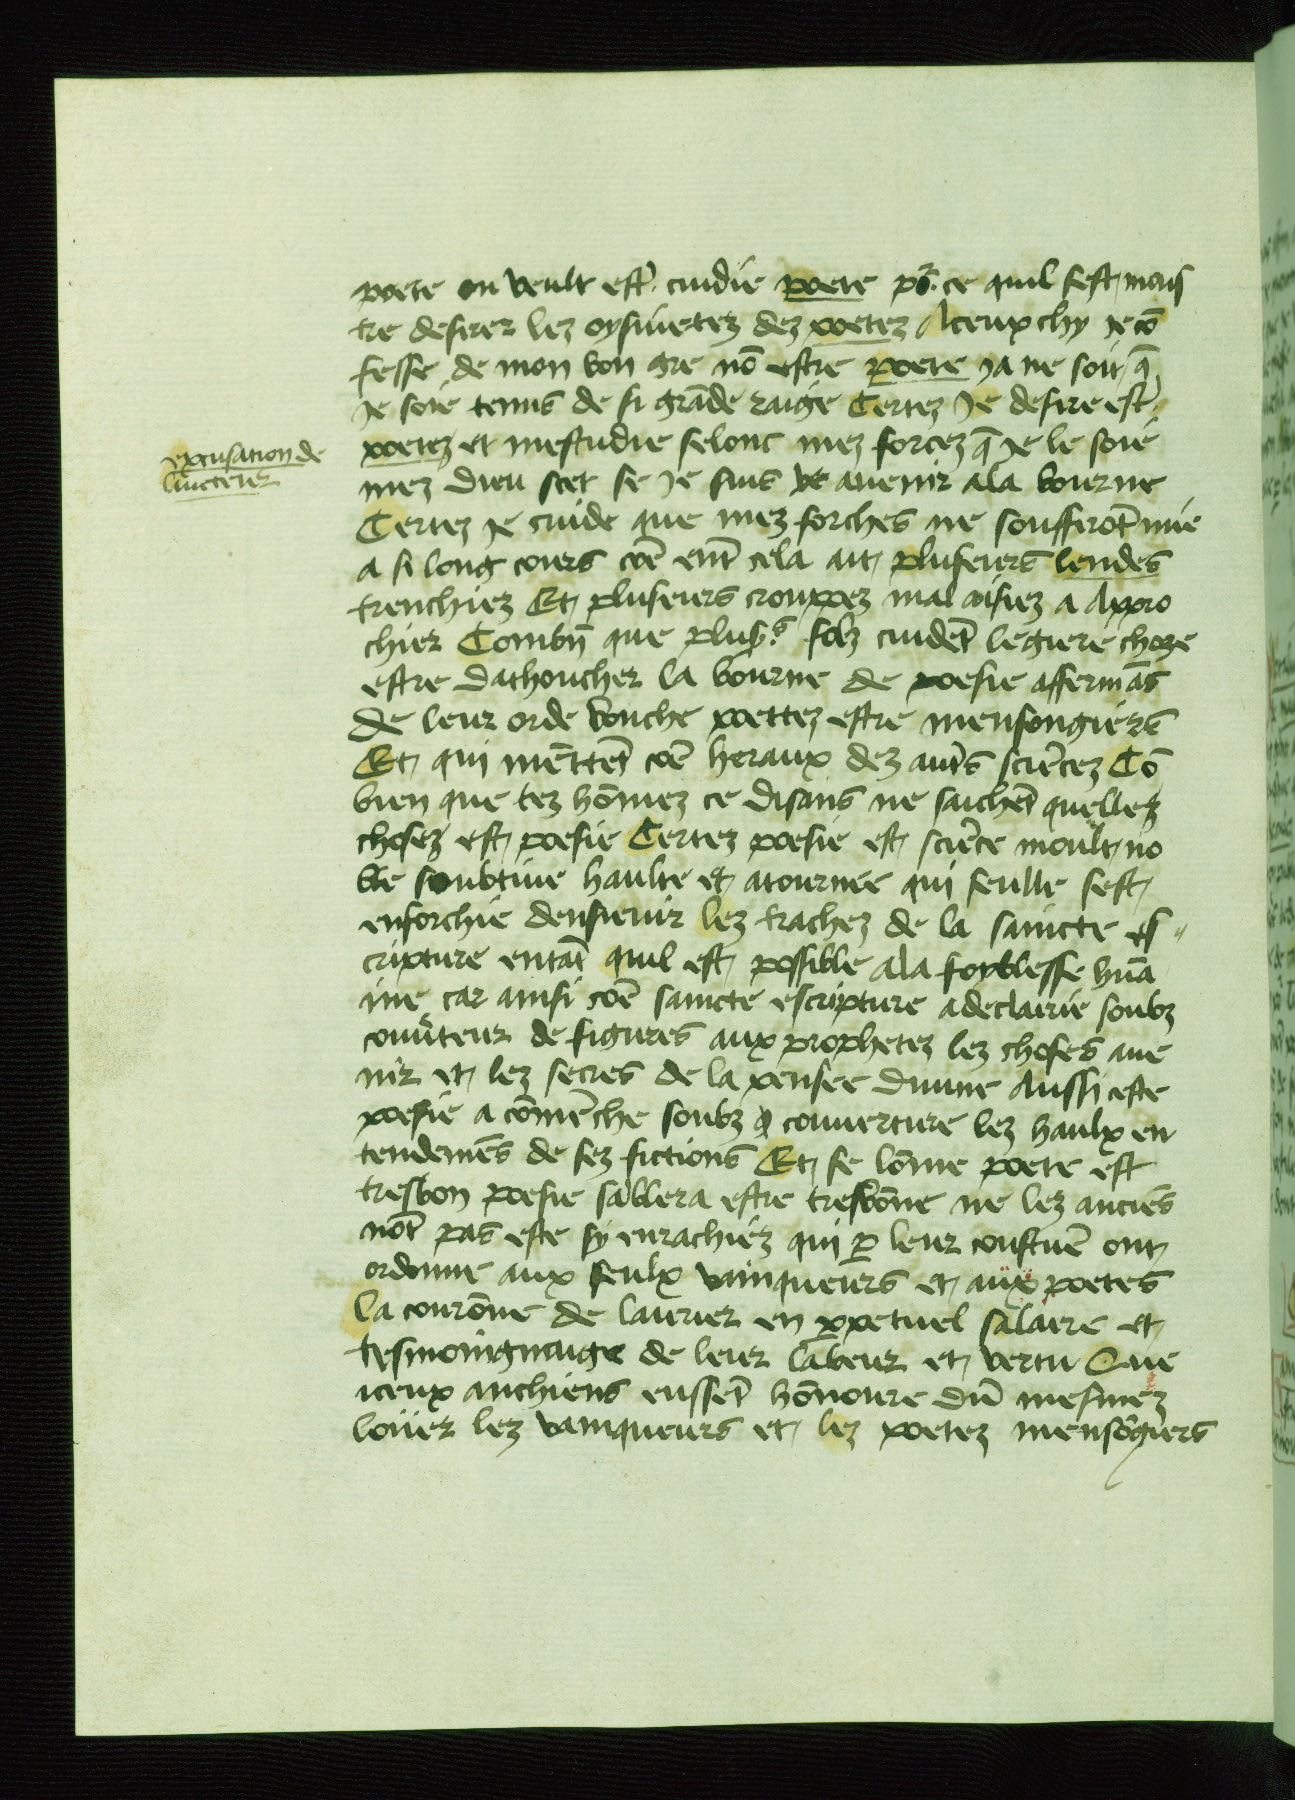 poete ou veult est̃ cuidie poete po᷑ ce quil sest mais
tre desirer lez oysiuetez dez poetez A ceux chy je cõ
fesse de mon bon gre nõ estre poete ja ne soit q̃
Je soie tenus de si grãde raige Certez Je desire est̃
poetez et mestudie selonc mez forcez q̃ Je le soie
excusation de
laucteur
mez dieu scet se Je suis avenir a la bourne
Certez Je cuide que mez forches ne souffirõt mie
a si long cours cõe eñt cela ait pluseurs lendes
trenchiez Et pluseurs croupez mal aisiez a Appro
chier Combñ que plus.s folz cuidẽt legiere choze
estre dathoucher la bourne de poesie affermãs
de leur orde bouche poettez estre mensongiers
Et qui mẽttẽt cõe heraux dez aut̃s sciẽcez Cõ
bien que tez hõmez ce disans ne saichẽt quellez
chosez est poesie Certez poesie est sciẽce moult no
ble soubtiue haulte et atournee qui seulle sest
enforchie densieuir lez trachez de la saincte es
cripture entãt quil est possible a la foyblesse hũa
ine car ainsi cõe saincte escripture a declairie soubz
couũteur de figures aux prophetez lez choses aue
nir et lez secres de la pensee diuine Aussi ceste
poesie a cõmẽche soubz couuerture lez haulx en
tendemẽs de sez fictions Et se lõme poete est
tresbon poesie sãblera estre tresbõne ne lez anciẽs
nõt pas este sy enrachiez qui p̱ leur coustuẽ ont
ordonne aux seulx vainqueurs et aux poetes
La courõne de laurier en p̱petuel salaire et
tesmoingnaige de leur labeur et vertu Que
iceux anchiens eussẽt hõnoure dũ mesmez
louier lez vainqueurs et lez poetez mensõgiers